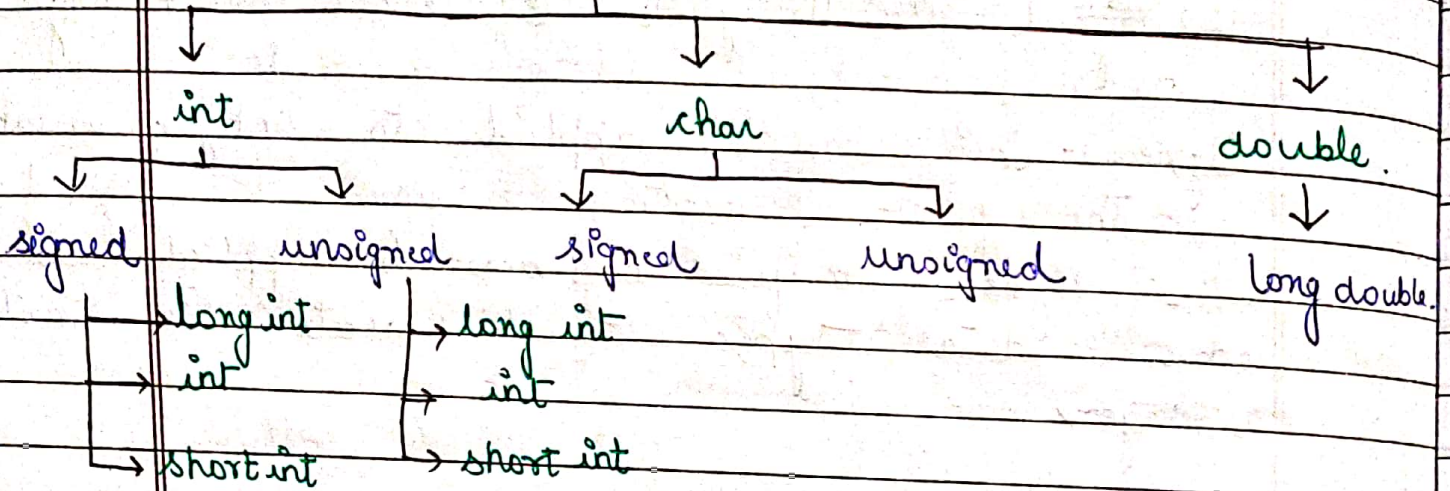 int char double.
signed unsigned signed unsigned long double.
long int long int
int int
short int short int